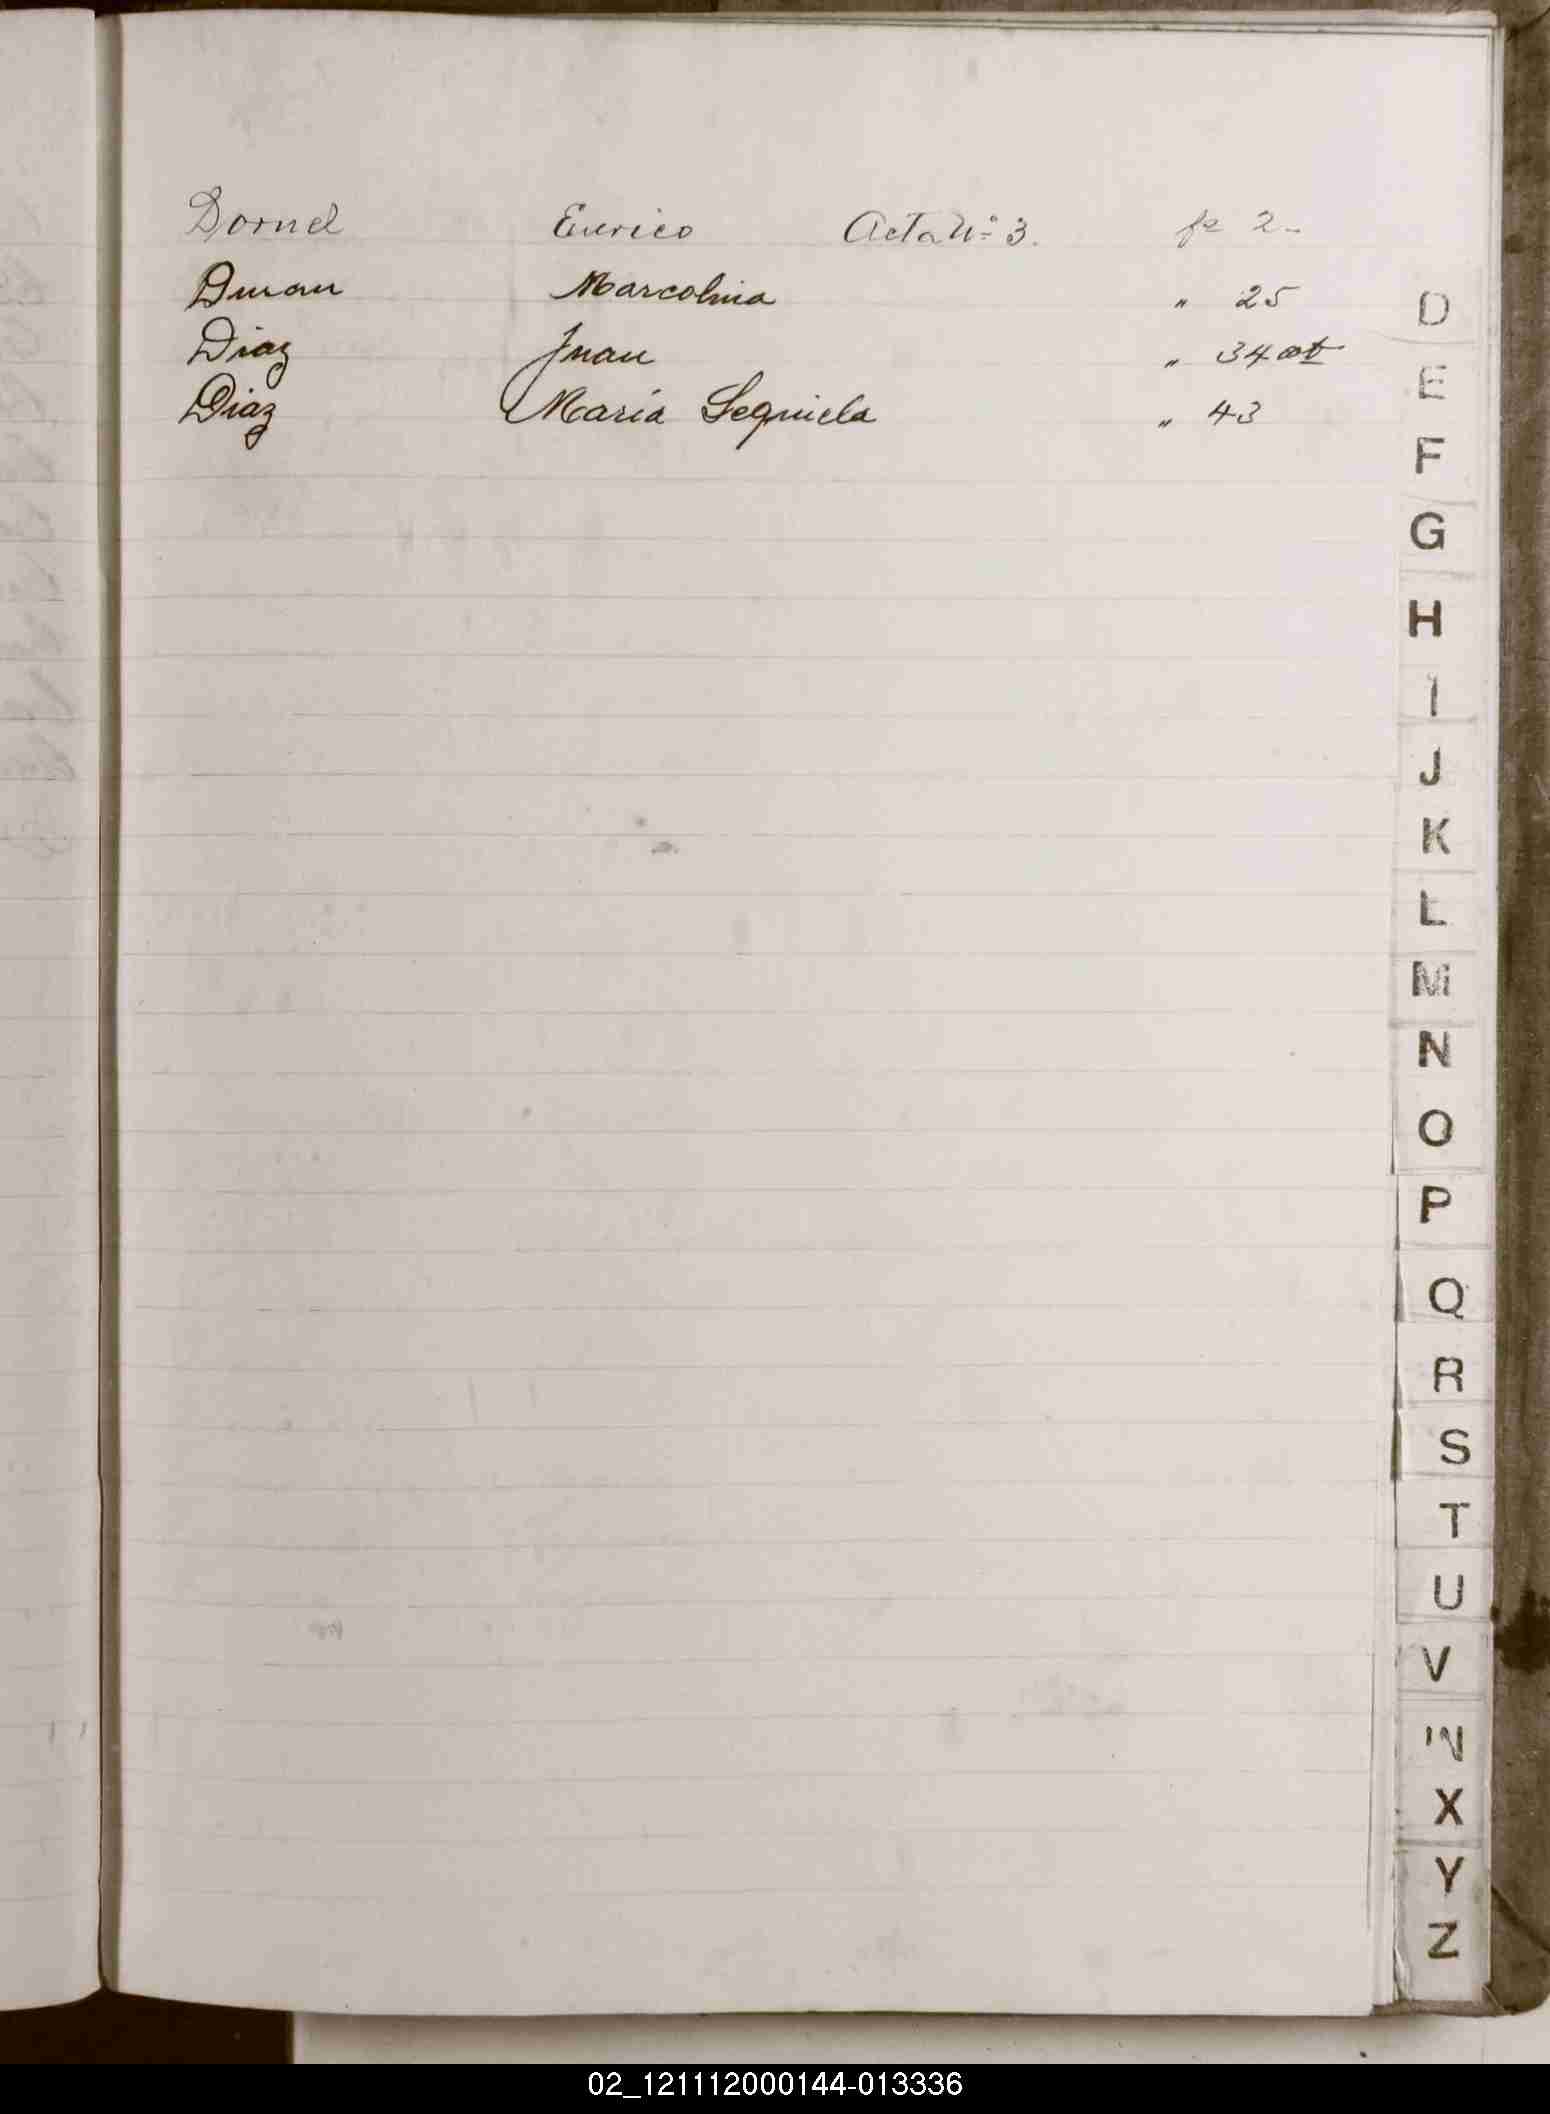 Dornel Eurico Acta Nº 3. fº 2-
Duran Marcolina " 25
Diaz Juan " 34
Diaz Maria " 43
D
E
F
G
H
I
J
K
L
M
N
O
P
Q
R
S
T
U
V
W
X
Y
Z
02_121112000144-013336